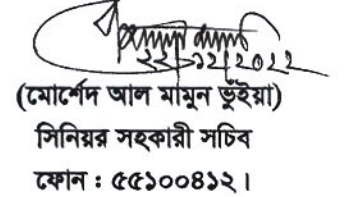 ২২/১২/২০২২
(মোর্শেদ আল মামুন ভূঁইয়া)
সিনিয়র সহকারী সচিব
ফোন : ৫৫১০০৪১২।